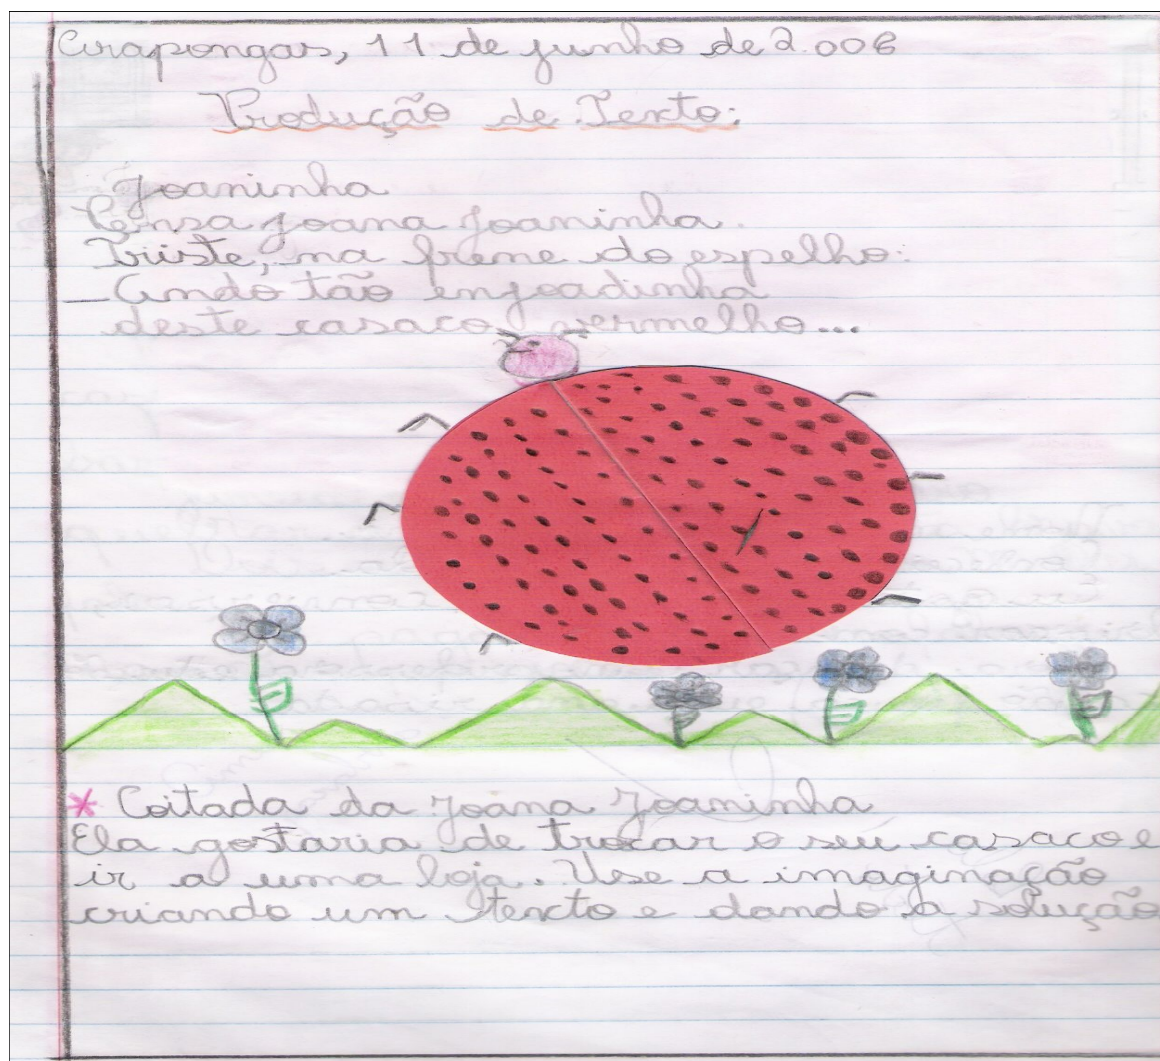 Arapongas, 11 de junho de 2.006
Produção de Texto:
Joaninha
Pensa Joana Joaninha.
Triste, na frene do espelho:
— Ando tão enjoadinha
deste casaco vermelho...
* Coitada da Joana Joaninha
Ela gostaria de trocar o seu casaco e
ir a uma loja. Use a imaginação
criando um texto e dando a solução